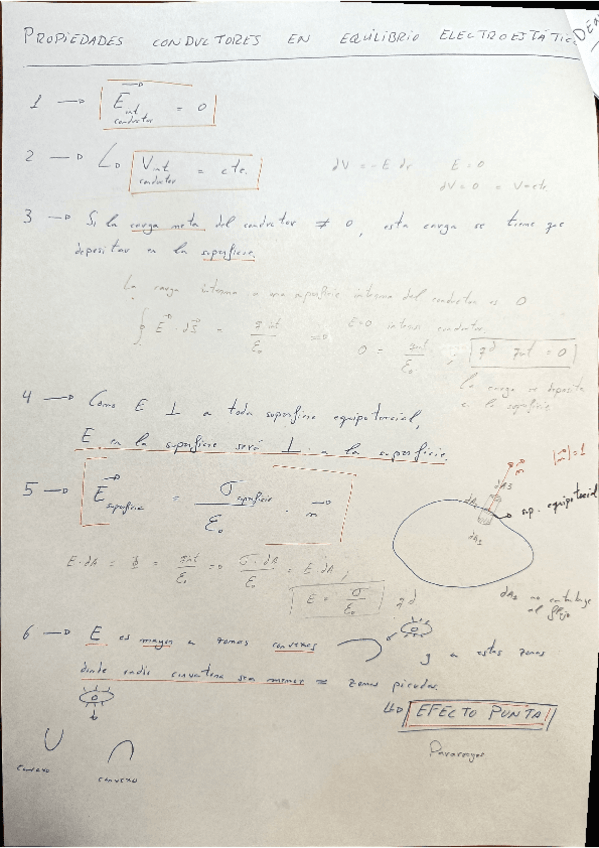 PROPIEDADES CONDUCTORES EN EQUILIBRIO ELECTROESTÁTICO
1 → E⃗ int conductor = 0
2 → V int conductor = cte.
dV = -E dr E=0
dV=0 ⇒ V=cte.
3 → Si la carga neta del conductor ≠ 0, esta carga se tiene que
depositar en la superficie.
La carga interna a una superficie interna del conductor es 0
∮ E⃗ · dS⃗ = q int / ε₀ ⇒ E=0 interior conductor
0 = q int / ε₀ ; qd q int = 0
La carga se deposita
en la superficie
4 → Como E ⊥ a toda superficie equipotencial,
E en la superficie será ⊥ a la superficie.
5 → E⃗ superficie = σ superficie / ε₀ · n⃗
|n⃗|=1
n⃗
sup. equipotencial
E·dA = Φ = q int / ε₀ ⇒ σ·dA / ε₀ = E dA ;
E = σ / ε₀ qd
al flujo
6 → E es mayor en zonas convexas
y en estas zonas
donde radio curvatura sea menor = zonas picudas.
↳ EFECTO PUNTA!
Pararrayos
concavo
convexo